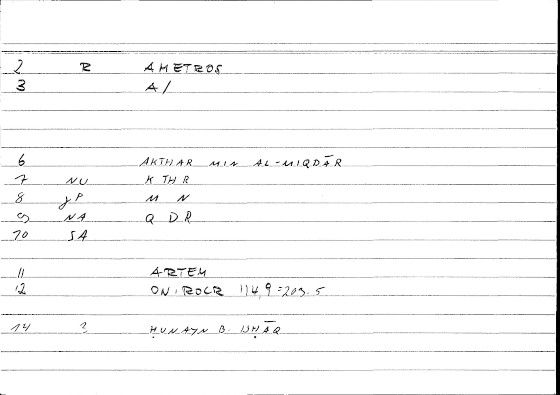 2 R AMETROS
3 A/
6 AKTHAR MIN AL-MIQDĀR
7 NU KTHR
8 gP MN
9 NA QDR
10 SA
11 ARTEM
12 ONIROCR 114,9=203.5
14 2 ḤUNAYN B. ISḤĀQ